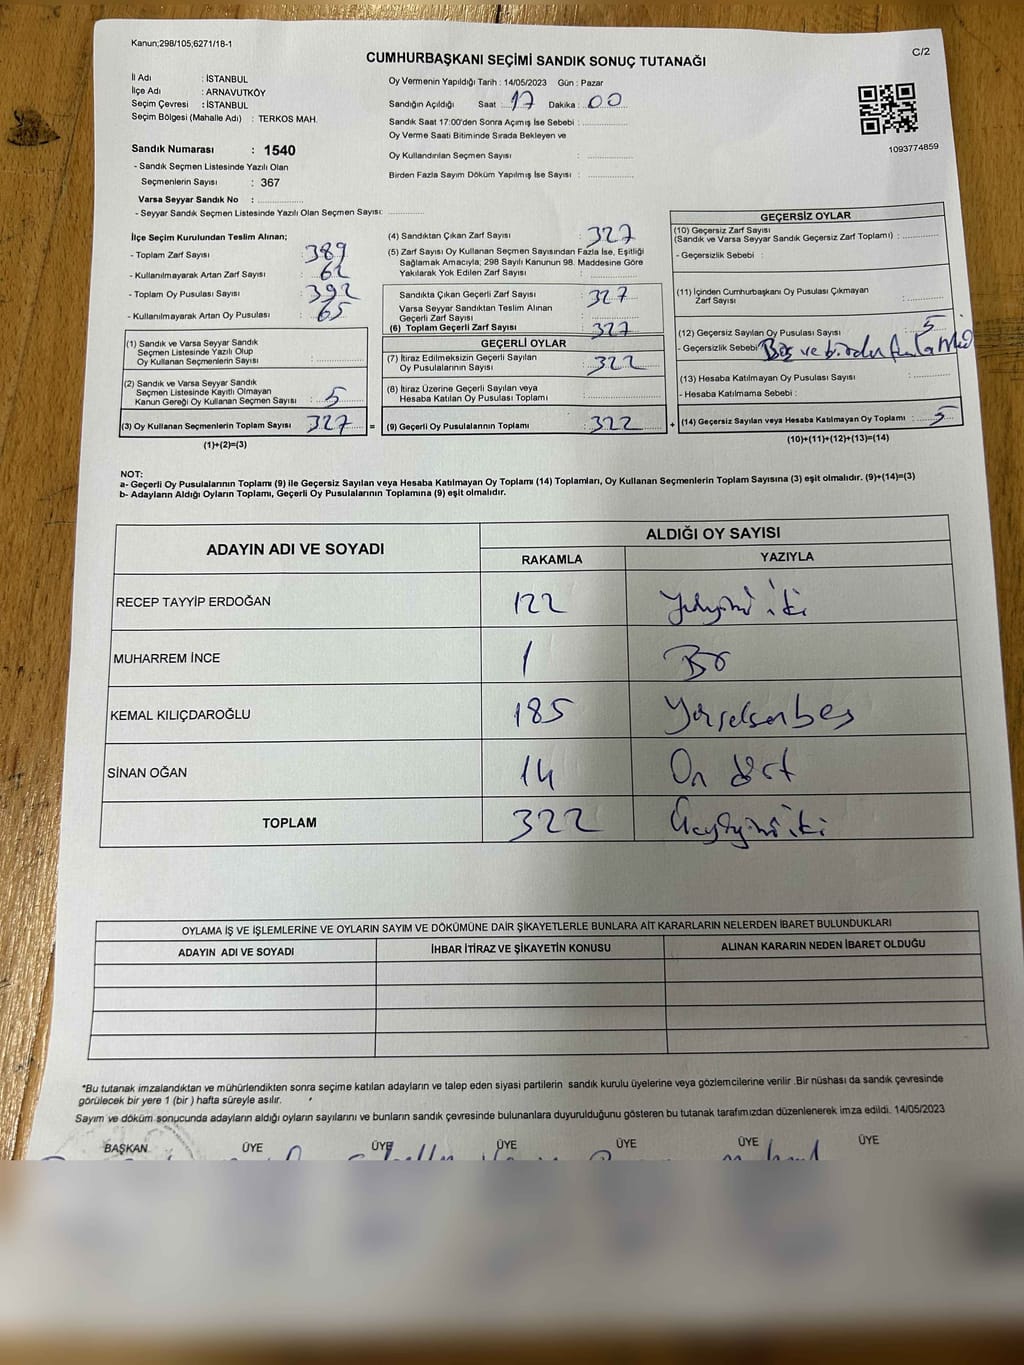 Kanun;298/105;6271/18-1
C/2
CUMHURBAŞKANI SEÇİMİ SANDIK SONUÇ TUTANAĞI
İl Adı : İSTANBUL
İlçe Adı : ARNAVUTKÖY
Seçim Çevresi : İSTANBUL
Seçim Bölgesi (Mahalle Adı) : TERKOS MAH.
Sandık Numarası : 1540
- Sandık Seçmen Listesinde Yazılı Olan
Seçmenlerin Sayısı : 367
Varsa Seyyar Sandık No : ....................
- Seyyar Sandık Seçmen Listesinde Yazılı Olan Seçmen Sayısı: ..............
Oy Vermenin Yapıldığı Tarih : 14/05/2023 Gün : Pazar
Sandığın Açıldığı Saat : 17 Dakika : 00
Sandık Saat 17:00'den Sonra Açımış İse Sebebi : ....................
Oy Verme Saati Bitiminde Sırada Bekleyen ve
Oy Kullandırılan Seçmen Sayısı : ....................
Birden Fazla Sayım Döküm Yapılmış İse Sayısı : ....................
1093774859
İlçe Seçim Kurulundan Teslim Alınan;
- Toplam Zarf Sayısı : 389
- Kullanılmayarak Artan Zarf Sayısı : 62
- Toplam Oy Pusulası Sayısı : 392
- Kullanılmayarak Artan Oy Pusulası : 65
(1) Sandık ve Varsa Seyyar Sandık
Seçmen Listesinde Yazılı Olup
Oy Kullanan Seçmenlerin Sayısı : ....................
(2) Sandık ve Varsa Seyyar Sandık
Seçmen Listesinde Kayıtlı Olmayan
Kanun Gereği Oy Kullanan Seçmen Sayısı : 5
(3) Oy Kullanan Seçmenlerin Toplam Sayısı 327 =
(1)+(2)=(3)
(4) Sandıktan Çıkan Zarf Sayısı : 327
(5) Zarf Sayısı Oy Kullanan Seçmen Sayısından Fazla İse, Eşitliği
Sağlamak Amacıyla; 298 Sayılı Kanunun 98. Maddesine Göre
Yakılarak Yok Edilen Zarf Sayısı : ....................
Sandıkta Çıkan Geçerli Zarf Sayısı : 327
Varsa Seyyar Sandıktan Teslim Alınan
Geçerli Zarf Sayısı : ....................
(6) Toplam Geçerli Zarf Sayısı : 327
GEÇERLİ OYLAR
(7) İtiraz Edilmeksizin Geçerli Sayılan
Oy Pusulalarının Sayısı : 322
(8) İtiraz Üzerine Geçerli Sayılan veya
Hesaba Katılan Oy Pusulası Toplamı : ....................
(9) Geçerli Oy Pusulalarının Toplamı : 322 +
GEÇERSİZ OYLAR
(10) Geçersiz Zarf Sayısı
(Sandık ve Varsa Seyyar Sandık Geçersiz Zarf Toplamı) : ............
- Geçersizlik Sebebi :
(11) İçinden Cumhurbaşkanı Oy Pusulası Çıkmayan
Zarf Sayısı : ............
(12) Geçersiz Sayılan Oy Pusulası Sayısı : 5
- Geçersizlik Sebebi Boş ve birden fazla
(13) Hesaba Katılmayan Oy Pusulası Sayısı : ............
- Hesaba Katılmama Sebebi :
(14) Geçersiz Sayılan veya Hesaba Katılmayan Oy Toplamı : 5
(10)+(11)+(12)+(13)=(14)
NOT:
a- Geçerli Oy Pusulalarının Toplamı (9) ile Geçersiz Sayılan veya Hesaba Katılmayan Oy Toplamı (14) Toplamları, Oy Kullanan Seçmenlerin Toplam Sayısına (3) eşit olmalıdır. (9)+(14)=(3)
b- Adayların Aldığı Oyların Toplamı, Geçerli Oy Pusulalarının Toplamına (9) eşit olmalıdır.
ADAYIN ADI VE SOYADI ALDIĞI OY SAYISI
RAKAMLA YAZIYLA
RECEP TAYYİP ERDOĞAN 122 Yüzyirmi iki
MUHARREM İNCE 1 Bir
KEMAL KILIÇDAROĞLU 185 Yüzseksenbeş
SİNAN OĞAN 14 On dört
TOPLAM 322 Üçyüzyirmi iki
OYLAMA İŞ VE İŞLEMLERİNE VE OYLARIN SAYIM VE DÖKÜMÜNE DAİR ŞİKAYETLERLE BUNLARA AİT KARARLARIN NELERDEN İBARET BULUNDUKLARI
ADAYIN ADI VE SOYADI İHBAR İTİRAZ VE ŞİKAYETİN KONUSU ALINAN KARARIN NEDEN İBARET OLDUĞU
*Bu tutanak imzalandıktan ve mühürlendikten sonra seçime katılan adayların ve talep eden siyasi partilerin sandık kurulu üyelerine veya gözlemcilerine verilir .Bir nüshası da sandık çevresinde
görülecek bir yere 1 (bir ) hafta süreyle asılır.
Sayım ve döküm sonucunda adayların aldığı oyların sayılarını ve bunların sandık çevresinde bulunanlara duyurulduğunu gösteren bu tutanak tarafımızdan düzenlenerek imza edildi. 14/05/2023
BAŞKAN ÜYE ÜYE ÜYE ÜYE ÜYE ÜYE